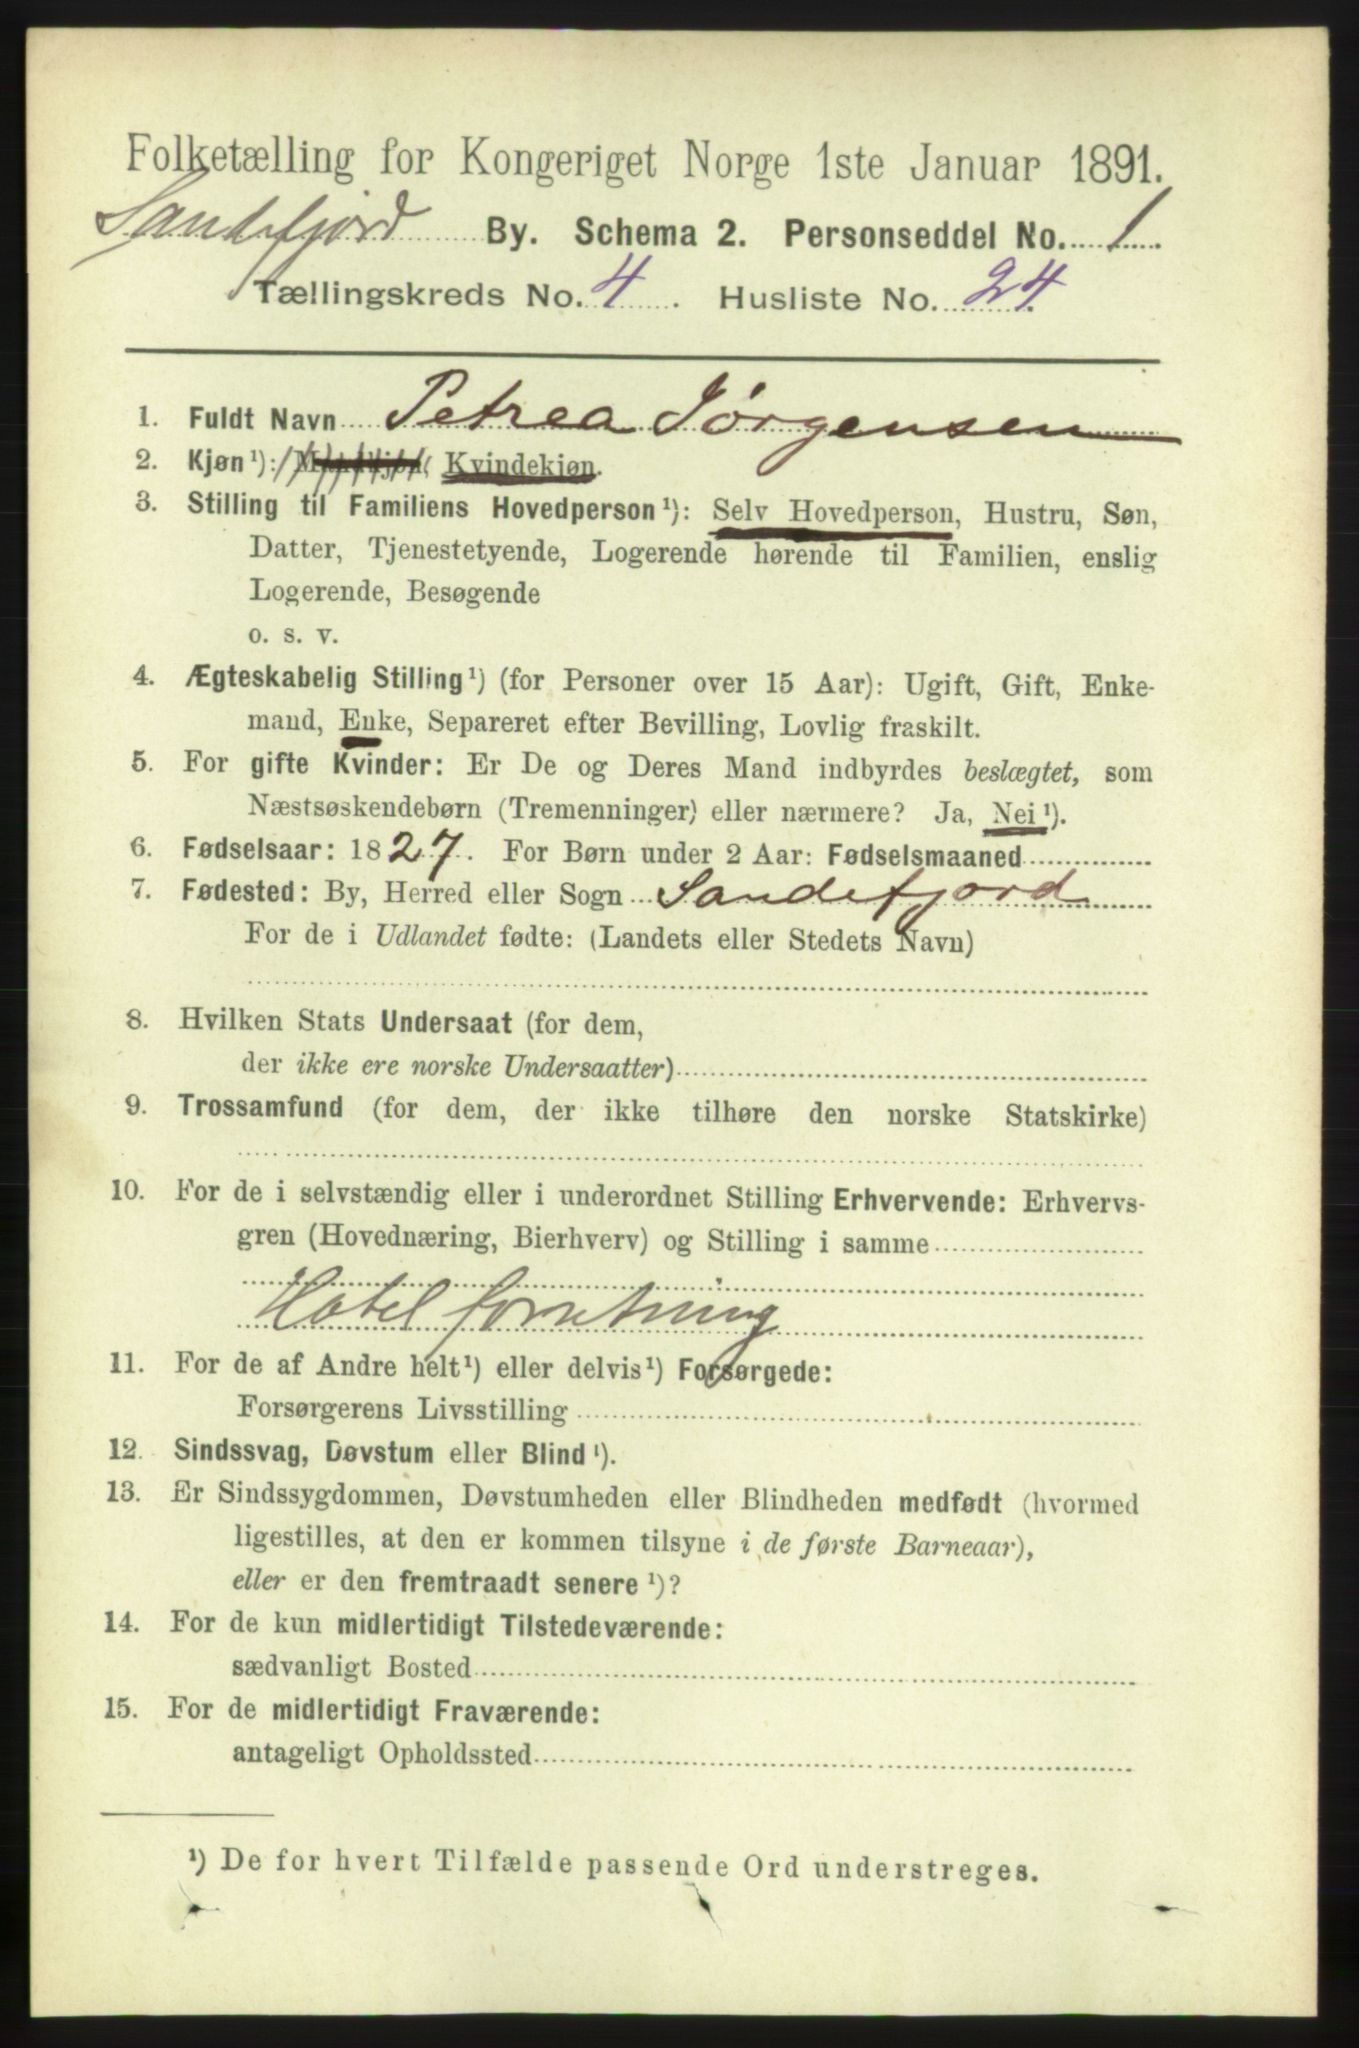 Folketælling for Kongeriget Norge 1ste Januar 1891.
Sandefjord By. Schema 2. Personseddel No. 1.
Tællingskreds No. 4. Husliste No. 24.
1. Fuldt Navn Petrea Jørgensen
2. Kjøn¹): Mandkjøn, Kvindekjøn.
3. Stilling til Familiens Hovedperson¹): Selv Hovedperson, Hustru, Søn,
Datter, Tjenestetyende, Logerende hørende til Familien, enslig
Logerende, Besøgende
o. s. v.
4. Ægteskabelig Stilling¹) (for Personer over 15 Aar): Ugift, Gift, Enke-
mand, Enke, Separeret efter Bevilling, Lovlig fraskilt.
5. For gifte Kvinder: Er De og Deres Mand indbyrdes beslægtet, som
Næstsøskendebørn (Tremenninger) eller nærmere? Ja, Nei¹).
6. Fødselsaar: 1827. For Børn under 2 Aar: Fødselsmaaned
7. Fødested: By, Herred eller Sogn Sandefjord
For de i Udlandet fødte: (Landets eller Stedets Navn)
8. Hvilken Stats Undersaat (for dem,
der ikke ere norske Undersaatter)
9. Trossamfund (for dem, der ikke tilhøre den norske Statskirke)
10. For de i selvstændig eller i underordnet Stilling Erhvervende: Erhvervs-
gren (Hovednæring, Bierhverv) og Stilling i samme
Hotel forretning
11. For de af Andre helt¹) eller delvis¹) Forsørgede:
Forsørgerens Livsstilling
12. Sindssvag, Døvstum eller Blind¹).
13. Er Sindssygdommen, Døvstumheden eller Blindheden medfødt (hvormed
ligestilles, at den er kommen tilsyne i de første Barneaar),
eller er den fremtraadt senere¹)?
14. For de kun midlertidigt Tilstedeværende:
sædvanligt Bosted
15. For de midlertidigt Fraværende:
antageligt Opholdssted
¹) De for hvert Tilfælde passende Ord understreges.